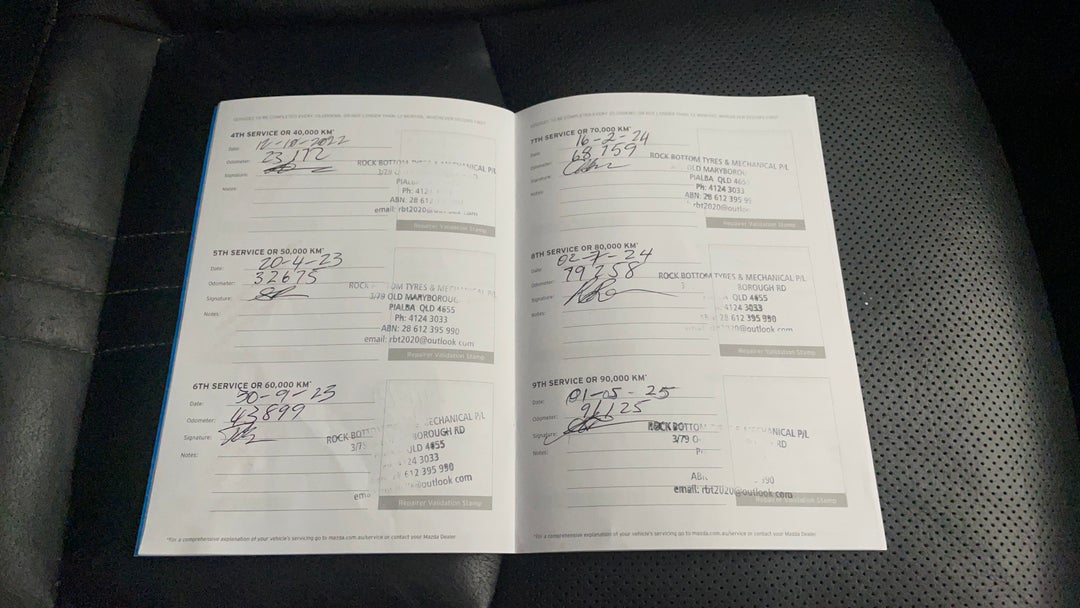 SERVICES TO BE COMPLETED EVERY 10,000KM, OR NO LONGER THAN 12 MONTHS, WHICHEVER OCCURS FIRST
4TH SERVICE OR 40,000 KM*
Date: 12-10-2022
Odometer: 23,172
Signature:
Notes:
ROCK BOTTOM MECHANICAL P/L
3/79 O
PIALB
Ph: 4124
ABN: 28 612
email: rbt2020@
Repairer Validation Stamp
5TH SERVICE OR 50,000 KM*
Date: 20-4-23
Odometer: 32675
Signature:
Notes:
ROCK BOTTOM TYRES & MECHANICAL P/L
3/79 OLD MARYBOROU
PIALBA QLD 4655
Ph: 4124 3033
ABN: 28 612 395 990
email: rbt2020@outlook com
Repairer Validation Stamp
6TH SERVICE OR 60,000 KM*
Date: 30-9-23
Odometer: 43899
Signature:
Notes:
ROCK BOTTOM ECHANICAL P/L
3/7 BOROUGH RD
QLD 4655
24 3033
612 395 990
ema @outlook com
Repairer Validation Stamp
*For a comprehensive explanation of your vehicle's servicing go to mazda.com.au/service or contact your Mazda Dealer
SERVICES TO BE COMPLETED EVERY 10,000KM, OR NO LONGER THAN 12 MONTHS, WHICHEVER OCCURS FIRST
7TH SERVICE OR 70,000 KM*
Date: 16-2-24
Odometer: 68,759
Signature:
Notes:
ROCK BOTTOM TYRES & MECHANICAL P/L
OLD MARYBOROU
PIALBA QLD 465
Ph: 4124 3033
ABN: 28 612 395 99
rbt2020@outlo
Repairer Validation Stamp
8TH SERVICE OR 80,000 KM*
Date: 02-7-24
Odometer: 79258
Signature:
Notes:
ROCK BOTTOM TYRES & MECHANICAL P/L
3 BOROUGH RD
QLD 4655
4124 3033
28 612 395 990
2020@outlook com
Repairer Validation Stamp
9TH SERVICE OR 90,000 KM*
Date: 01-05-25
Odometer: 91125
Signature:
Notes:
ROCK BOTTOM MECHANICAL P/L
3/79 O RD
ABN 990
email: rbt2020@outlook com
Repairer Validation Stamp
*For a comprehensive explanation of your vehicle's servicing go to mazda.com.au/service or contact your Mazda Dealer